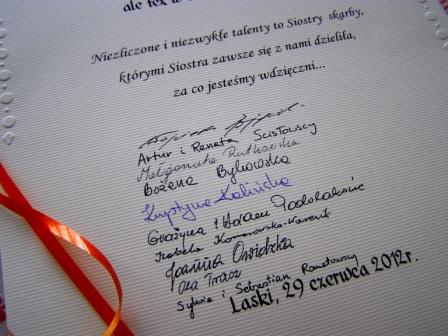 ale też w
Niezliczone i niezwykłe talenty to Siostry skarby,
którymi Siostra zawsze się z nami dzieliła,
za co jesteśmy wdzięczni...
Artur i Renata Ścisłowscy
Małgorzata Rutkowska
Bożena Bykowska
Krystyna Kalińska
Grażyna i Marcin
Izabela Komorowska-
Joanna
Ola Tracz
Sylwia i Sebastian
Laski, 29 czerwca 2012r.